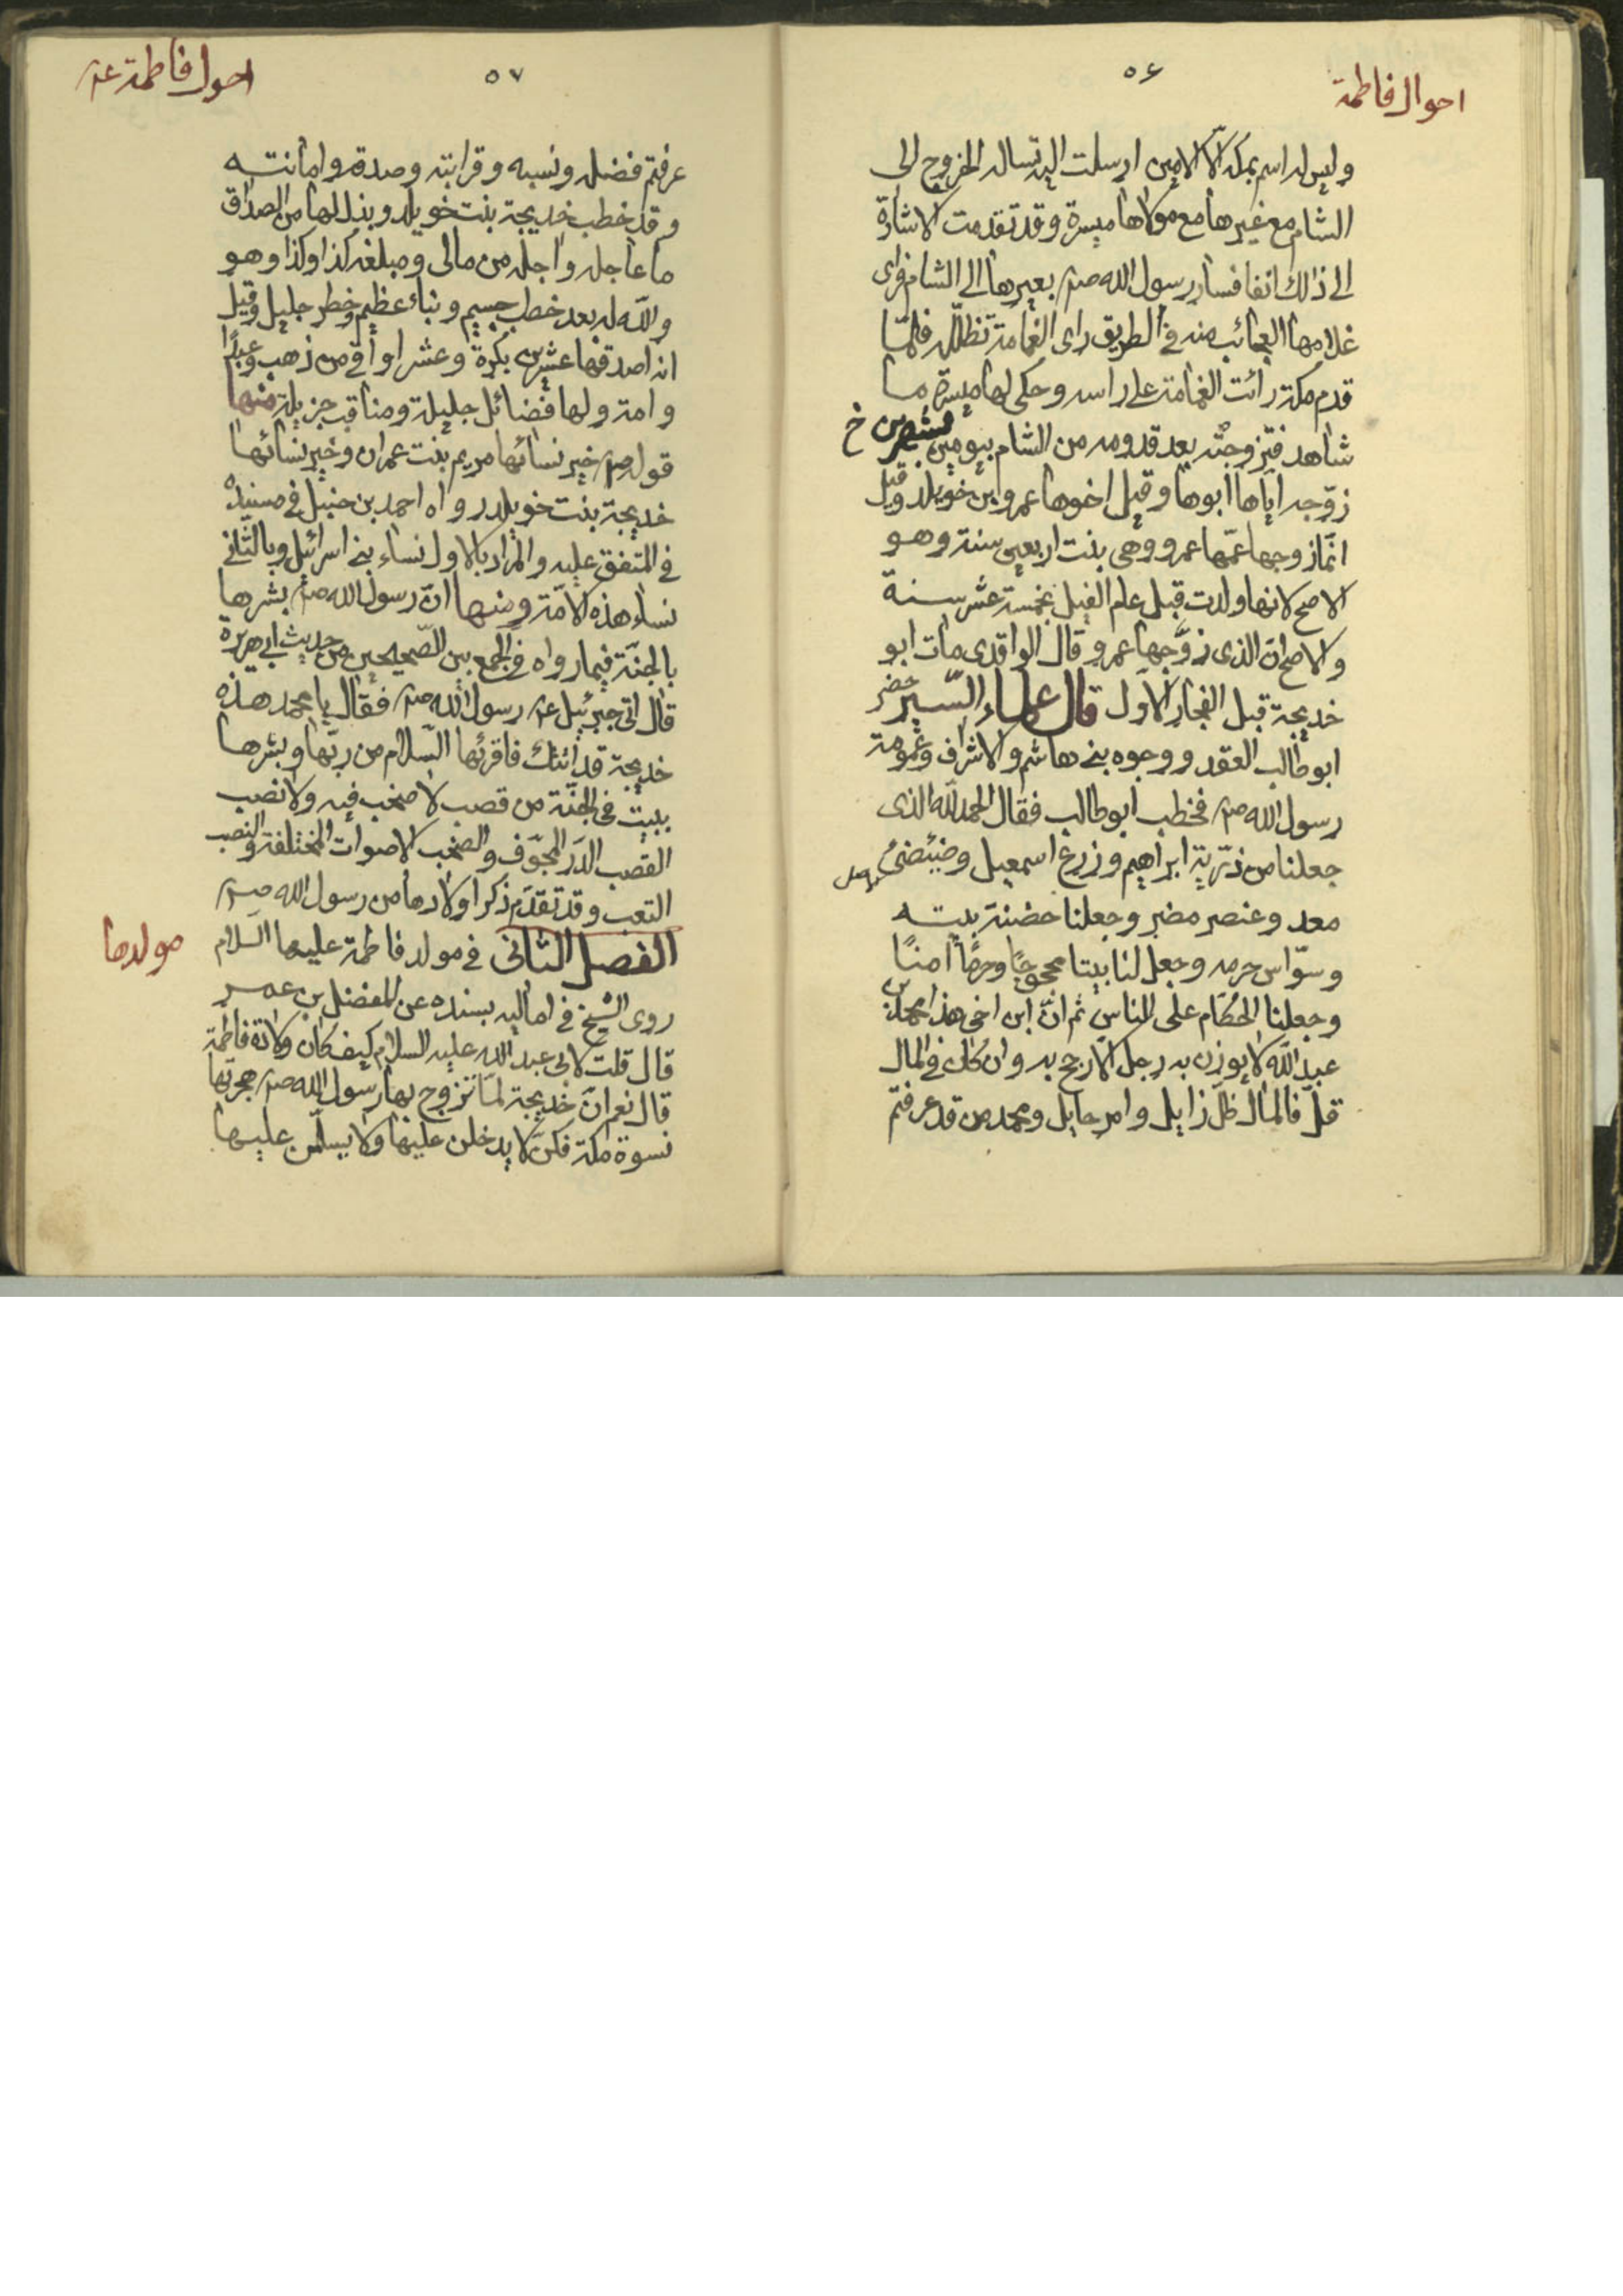 احوال فاطمة
٥٦
وليس له اسم بمكة الّا الامين ارسلت اليه تساله الخروج الى
الشام مع غيرها مع مولاها ميسرة وقد تقدمت الاشارة
الى ذلك انفا فسار رسول الله صم بعيرها الى الشام فراى
غلامها العجائب منه في الطريق راى الغمامة تظلله فلمّا
قدم مكة رائت الغمامة على راسه وحكى لها ميسرة ما
شاهد فتزوجته بعد قدومه من الشام بيومين بشهرين خ
زوّجه اياها ابوها وقيل اخوها عمرو ابن خويلد وقيل
انّما زوجها عمّها عمرو وهي بنت اربعين سنة وهو
الاصح لانها ولدت قبل عام الفيل بخمسة عشر سنة
والاصح ان الذى زوّجها عمرو وقال الواقدى مات ابو
خديجة قبل الفجار الاول قال علماء السّير حضر
ابو طالب العقد ووجوه بنى هاشم والاشراف وعمومة
رسول الله صم فخطب ابو طالب فقال الحمد لله الذى
جعلنا من ذرّية ابراهيم وزرع اسمعيل وضئضئ
معد وعنصر مضر وجعلنا حضنة بيته
وسوّاس حرمه وجعل لنا بيتا محجوجًا وحرمًا امنًا
وجعلنا الحكام على الناس ثم انّ ابن اخى هذا محمد بن
عبد الله لا يوزن به رجل الا رجح به وان كان في المال
قلّ فالمال ظلّ زايل وامر حايل ومحمد من قد عرفتم
احوال فاطمة عم
٥٧
عرفتم فضله ونسبه وقرابته وصدقه وامانته
وقد خطب خديجة بنت خويلد وبذل لها من الصداق
ما عاجله واجله من مالى ومبلغه كذا وكذا وهو
والله له بعد خطب جسيم ونباء عظيم وخطر جليل وقيل
انه اصدقها عشرين بكرة وعشر اواق من ذهب وعبدًا
وامة ولها فضائل جليلة ومناقب جزيلة منها
قوله صم خير نسائها مريم بنت عمران وخير نسائها
خديجة بنت خويلد رواه احمد بن حنبل في مسنده
في المتفق عليه والمراد بالاول نساء بنى اسرائيل وبالثّاني
نساء هذه الامّة ومنها انّ رسول الله صم بشرها
بالجنّة فيما رواه في الجمع بين الصّحيحين من حديث ابى هريرة
قال اتى جبرئيل عم رسول الله صم فقال يا محمد هذه
خديجة قد اتتك فاقرئها السّلام من ربّها وبشرها
ببيت في الجنّة من قصب لا صخب فيه ولا نصب
القصب الدّر المجوّف والصخب الاصوات المختلفة والنصب
التعب وقد تقدّم ذكر اولادها من رسول الله صم
الفصل الثانى في مولد فاطمة عليها السلام
مولدها
روى الشيخ في اماليه بسنده عن المفضل بن عمر
قال قلت لابى عبد الله عليه السلام كيف كان ولادة فاطمة
قال نعم انّ خديجة لمّا تزوج بها رسول الله صم هجرتها
نسوة مكة فكنّ لا يدخلن عليها ولا يسلّمن عليها